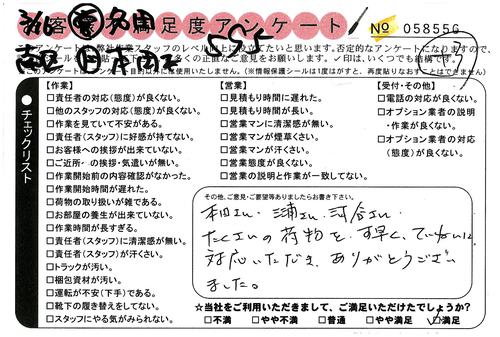 お客様満足度アンケート
№ 058556
このアンケートは、弊社作業スタッフのレベル向上に役立てたいと思います。否定的なアンケートになりますので、
多くの正直なご意見をお願いします。✓印は、いくつでも結構です。
このアンケートは目的以外には使用いたしません。(情報保護シールは1度はがすと、再度貼りなおすことはできません)
チェックリスト
【作業】
□責任者の対応(態度)が良くない。
□他のスタッフの対応(態度)が良くない。
□作業を見ていて不安がある。
□責任者(スタッフ)に好感が持てない。
□お客様への挨拶が出来ていない。
□ご近所への挨拶・気遣いが無い。
□作業開始前の内容確認がなかった。
□作業開始時間が遅れた。
□荷物の取り扱いが雑である。
□お部屋の養生が出来ていない。
□作業時間が長すぎる。
□責任者(スタッフ)に清潔感が無い。
□責任者(スタッフ)が汗くさい。
□トラックが汚い。
□梱包資材が汚い。
□運転が不安(下手)である。
□靴下の履き替えをしてない。
□スタッフにやる気がみられない。
【営業】
□見積もり時間に遅れた。
□見積もり時間が長い。
□営業マンに清潔感が無い。
□営業マンが煙草くさい。
□営業マンが汗くさい。
□営業態度が良くない。
□営業の説明と作業が一致してない。
【受付・その他】
□電話の対応が良くない。
□オプション業者の説明
・作業が良くない。
□オプション業者の対応
(態度)が良くない。
その他、ご意見・ご要望等ありましたらお書き下さい。
本田さん、三浦さん、河合さん、
たくさんの荷物を、手早く、ていねいに
対応いただき、ありがとうござい
ました。
☆当社をご利用いただきまして、ご満足いただけたでしょうか?
□不満 □やや不満 □普通 □やや満足 ☑満足